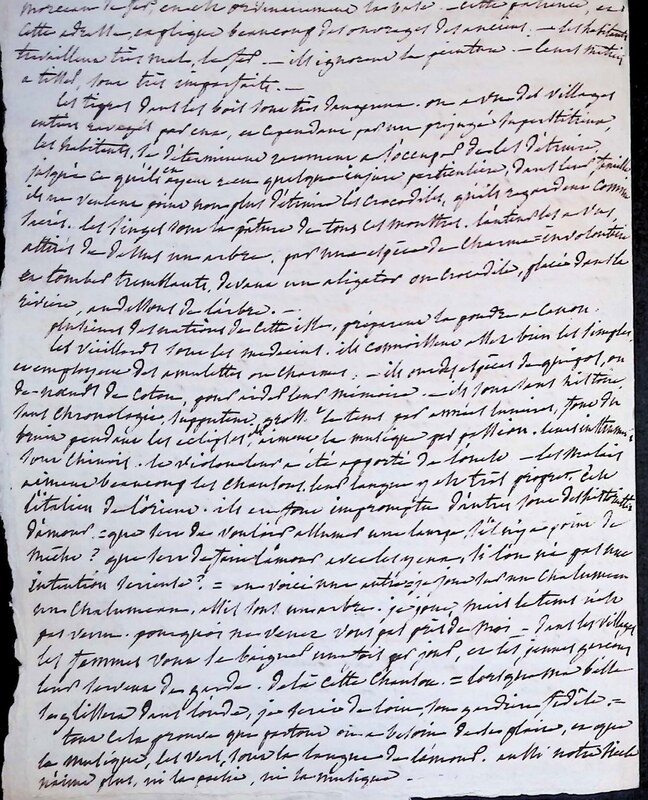 morceau de fer, en
cette adresse, explique beaucoup des ouvrages des anciens. — les habitants
travaillent très mal, le fer — ils ignorent la peinture. — leurs métiers
a tisser, sont très imparfaits. —
les tigres dans les bois sont très dangereux. on a vu des villages
entiers ravagés par eux, et cependant par un préjugé superstitieux,
les habitants, se déterminent rarement a s'occuper de les détruire,
jusqu'a ce qu'ils en ayent reçu quelque injure particuliere, dans leur famille
ils ne veulent point non plus détruire les crocodiles, qu'ils regardent comme
sacrés. les singes sont la pature de tous ces monstres.
attirés de dessus un arbre, par une espèce de charme involontaire
et tomber tremblants, devant un aligator ou crocodile, placé dans la
rivière, au dessous de l'arbre. —
plusieurs des nations de cette isle, préparent la poudre a canon.
les vieillards sont les medecins. ils connoissent assez bien les simples,
et employent des amulettes ou charmes. — ils ont des espèces de quipos, ou
de nœuds de coton, pour aider leur mémoire. — ils sont sans histoire,
sans chronologie, supputent le tems par années lunaires, font du
bruit pendant les éclipses, aiment la musique par passion. leurs instruments
sont chinois. le violon leur a été apporté de — les malais
aiment beaucoup les chansons. leur langue y est très propre. c'est
l'italien de l'orient. ils en font impromptu d'autres sont des
d'amour. = que sert de vouloir allumer une lampe, s'il n'y a point de
mèche? que sert de faire l'amour avec les yeux, si l'on n'a pas une
intention serieuse? = en voici une autre: je joue sur un chalumeau
un chalumeau, assis sous un arbre. je joue, mais le tems n'est
pas venu. pourquoi ne venez vous pas près de moi — dans les villages
les femmes vont se baigner une fois par jour, et les jeunes garçons
leur servent de garde. de là cette chanson. = lorsque ma belle
se glissera dans l'onde, je serai de loin, son gardien fidèle. =
tout cela prouve que partout on a besoin de se plaire, et que
la musique, les vers, sont la langue de l'amour. aussi notre siècle
n'aime plus, ni la poésie, ni la musique. —